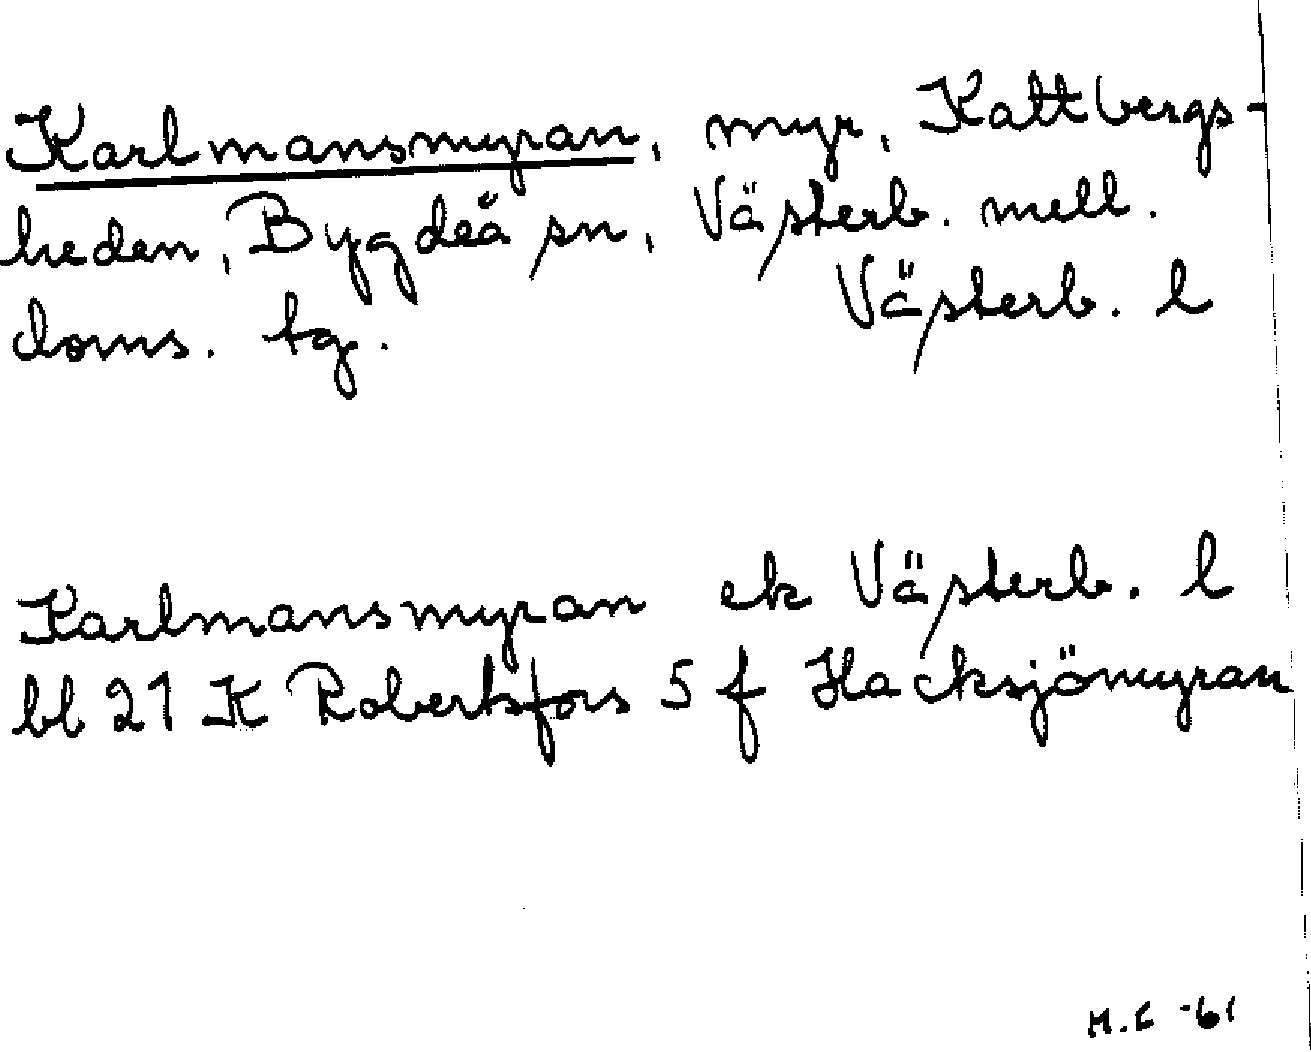 Karlmansmyran, myr, Kattbergs-
heden, Bygdeå sn, Västerb. mell.
doms. tg. Västerb. l
Karlmansmyran ek Västerb. l
bl 21 K Robertsfors 5 f Hacksjömyran
M.E -61